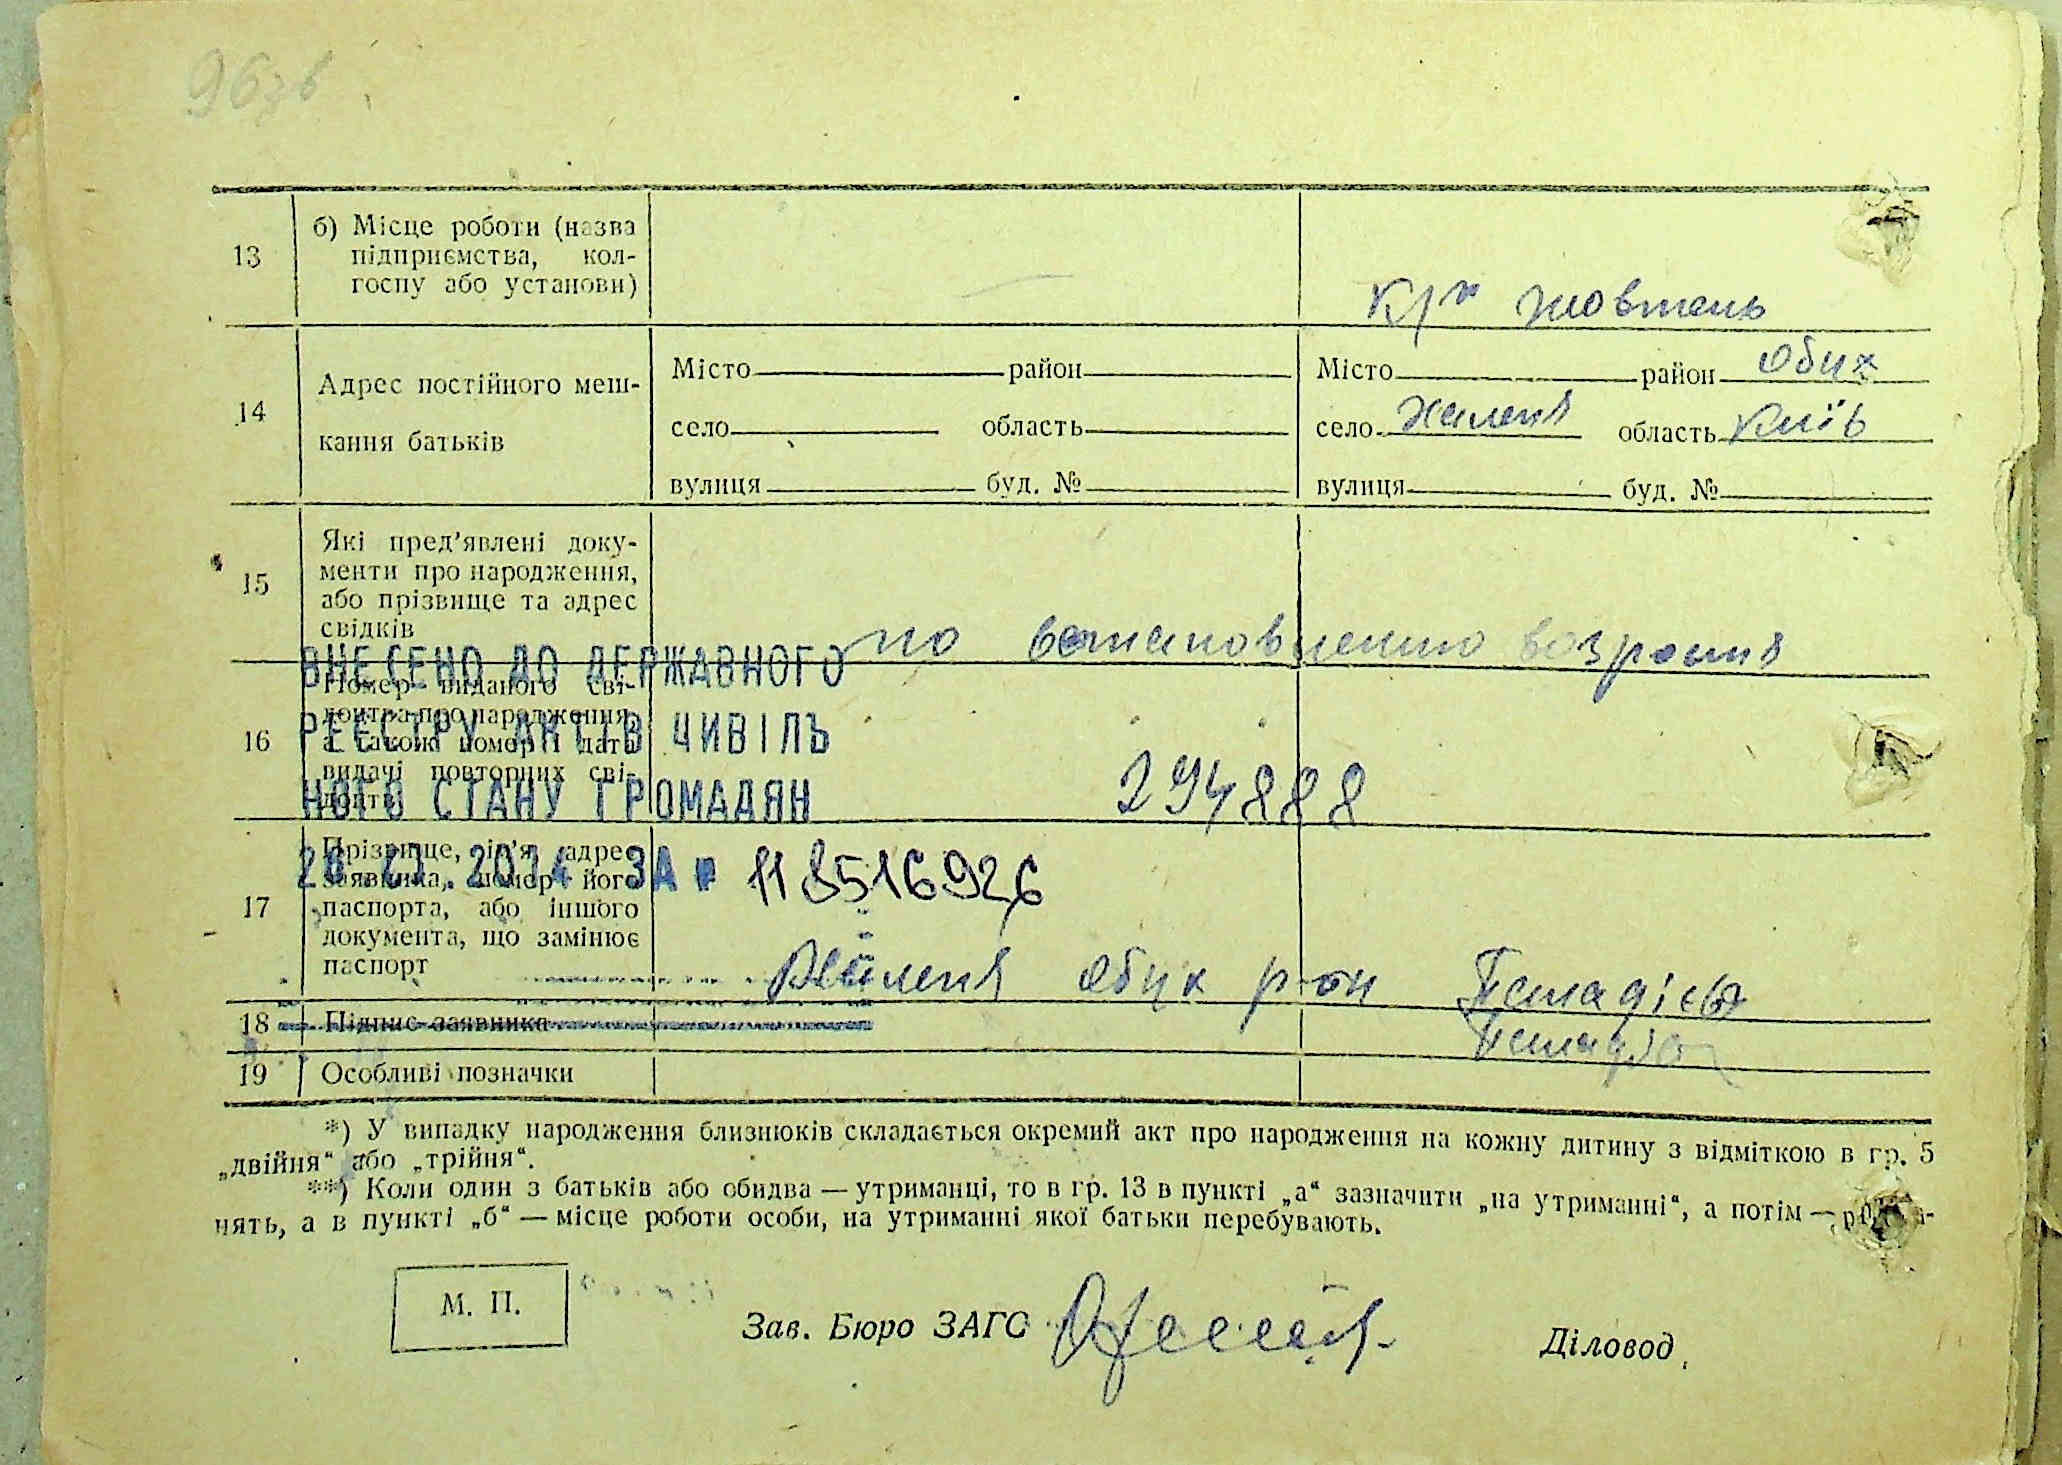 96зв
13
б) Місце роботи (назва
підприємства, кол-
госпу або установи)
к/г жовтень
14
Адрес постійного меш-
кання батьків
Місто район
село область
вулиця буд. №
Місто район Обух
село область Київ
вулиця буд. №
15
Які пред'явлені доку-
менти про народження,
або прізвище та адрес
свідків
по встановленню возраста
ВНЕСЕНО ДО ДЕРЖАВНОГО
РЕЄСТРУ АКТІВ ЦИВІЛЬ
НОГО СТАНУ ГРОМАДЯН
16
Номер виданого сві-
доцтва про народження,
а також номер і дата
видачі повторних сві-
доцтв
294888
2014 ЗА № 118516926
17
Прізвище, ім'я, адрес
заявника, номер його
паспорта, або іншого
документа, що замінює
паспорт
Обух р-он
18 Підпис заявника
19 Особливі позначки
*) У випадку народження близнюків складається окремий акт про народження на кожну дитину з відміткою в гр. 5
„двійня“ або „трійня“.
**) Коли один з батьків або обидва — утриманці, то в гр. 13 в пункті „а“ зазначити „на утриманні“, а потім —
нять, а в пункті „б“ — місце роботи особи, на утриманні якої батьки перебувають.
М. П.
Зав. Бюро ЗАГС
Діловод